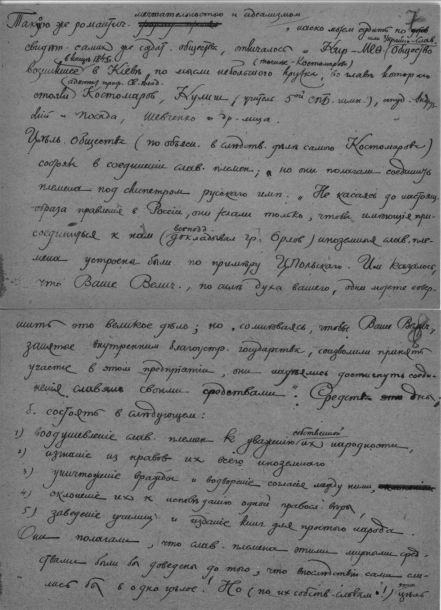 7
мечтательностью и идеализмом
Такою же романтич.
, насколько можем судить по
свидет. самих же участ. общества, отличалось и Кир-Меѳ. (Общество
возникшее в Кіевѣ по мысли небольшого кружка, во главѣ которого
в концѣ 1846 г.
стояли Костомаров, Кулиш, учитель 5ой СПб. гимн.), студ.
и Посяда, Шевченко и др. лица.
Цѣль общества (по объясн. в слѣдств. дѣлѣ самого Костомарова)
состоял в соединеніи слав. племен; но они полагали соединить
племена под скипетром русскаго имп. „Не касаясь до настоящ.
образа правленія в Россіи, они желали только, чтобы имѣющія при-
соединиться к нам (докладывал гр. Орлов) иноземныя слав. пле-
мена устроены были по примѣру Ц. Польскаго. Им казалось,
что Ваше Велич., по силѣ духа вашего, одни можете совер-
8
шить это великое дѣло; но, сомнѣваясь, чтобы Ваше Велич.,
занятое внутренним благоустр. государства, соизволили принять
участіе в этом предпріятіи, они надѣялись достигнуть соеди-
ненія славян своими средствами". Средств. это д.
б. состоять в слѣдующем:
собственной
1) воодушевленіе слав. племен к уваженію их народности,
2) изгнаніе из нравов их всего иноземного
3) уничтоженіе вражды и водвореніе согласія между ними,
4) склоненіе их к исповѣданію одной правосл. вѣры,
5) заведеніе училищ и изданіе книг для простого народа.
Они полагали, что слав. племена этими мирными сред-
ствами были бы доведены до того, что впослѣдствіи сами сли-
лись бы в одно цѣлое! Но (по их собств. словам!) цѣль